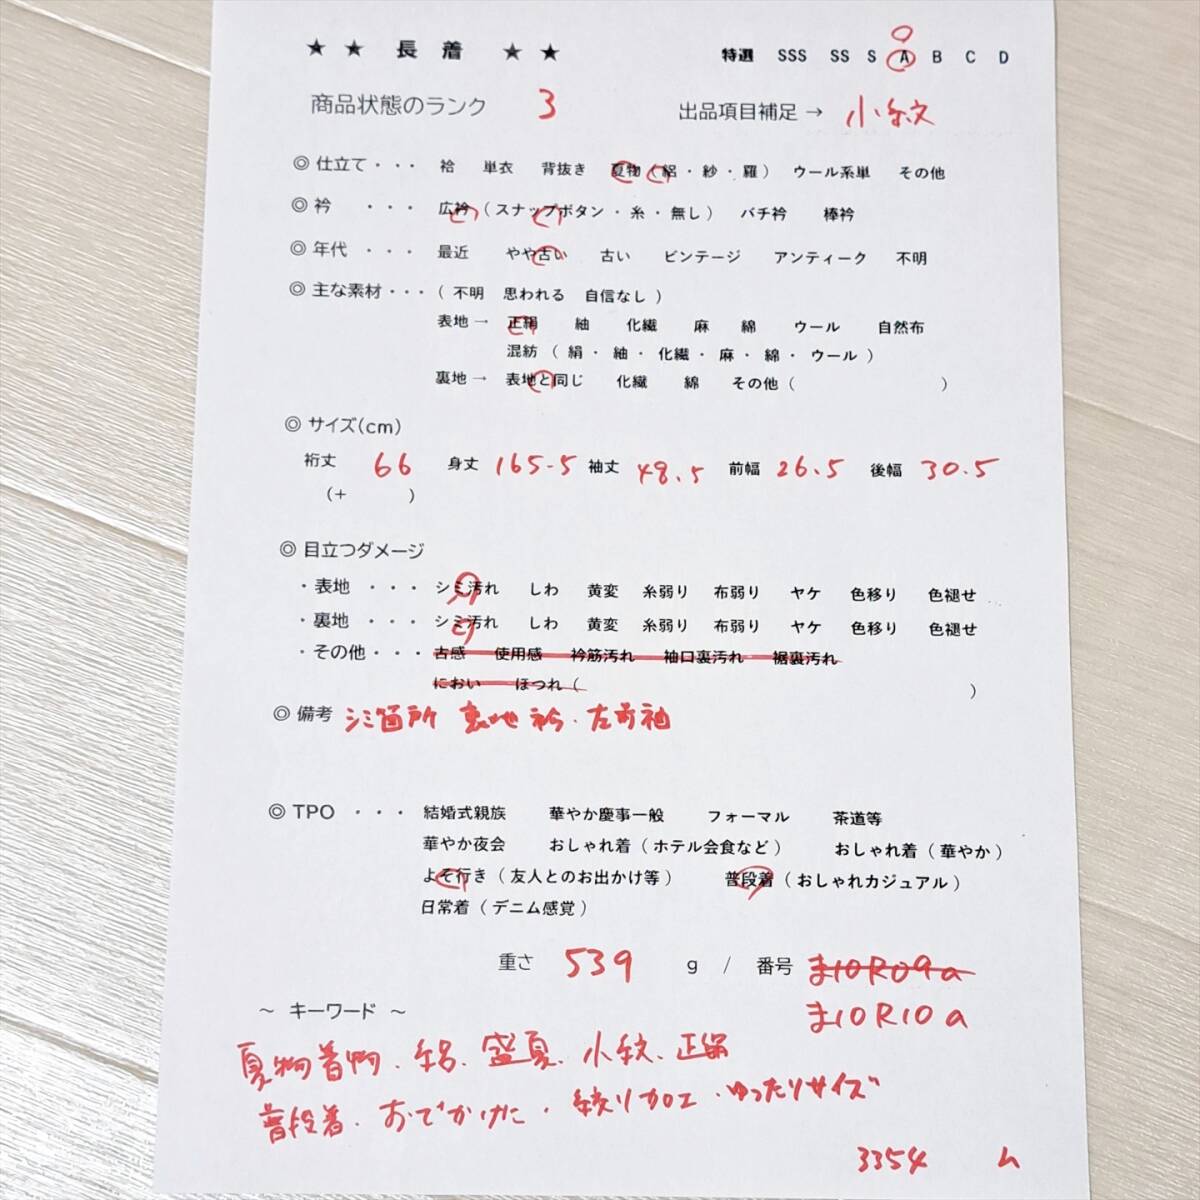 ★ ★ 長 着 ★ ★ 特選 SSS SS S A B C D
商品状態のランク 3 出品項目補足 → 小紋
◎ 仕立て ・・・ 袷 単衣 背抜き 夏物 ( 絽 ・ 紗 ・ 羅 ) ウール系単 その他
◎ 衿 ・・・ 広衿 ( スナップボタン ・ 糸 ・ 無し ) バチ衿 棒衿
◎ 年代 ・・・ 最近 やや古い 古い ビンテージ アンティーク 不明
◎ 主な素材 ・・・ ( 不明 思われる 自信なし )
表地 → 正絹 紬 化繊 麻 綿 ウール 自然布
混紡 ( 絹 ・ 紬 ・ 化繊 ・ 麻 ・ 綿 ・ ウール )
裏地 → 表地と同じ 化繊 綿 その他 ( )
◎ サイズ(cm)
裄丈 66 身丈 165.5 袖丈 48.5 前幅 26.5 後幅 30.5
(+ )
◎ 目立つダメージ
・表地 ・・・ シミ汚れ しわ 黄変 糸弱り 布弱り ヤケ 色移り 色褪せ
・裏地 ・・・ シミ汚れ しわ 黄変 糸弱り 布弱り ヤケ 色移り 色褪せ
・その他 ・・・ 古感 使用感 衿筋汚れ 袖口裏汚れ 裾裏汚れ
におい ほつれ ( )
◎ 備考 シミ箇所 裏地 衿・左前袖
◎ TPO ・・・ 結婚式親族 華やか慶事一般 フォーマル 茶道等
華やか夜会 おしゃれ着 ( ホテル会食など ) おしゃれ着 ( 華やか )
よそ行き ( 友人とのお出かけ等 ) 普段着 ( おしゃれカジュアル )
日常着 ( デニム感覚 )
重さ 539 g / 番号 ま10R09a
ま10R10a
～ キーワード ～
夏物着物、絽、盛夏、小紋、正絹
普段着、おでかけに、絞り加工、ゆったりサイズ
3354 ム